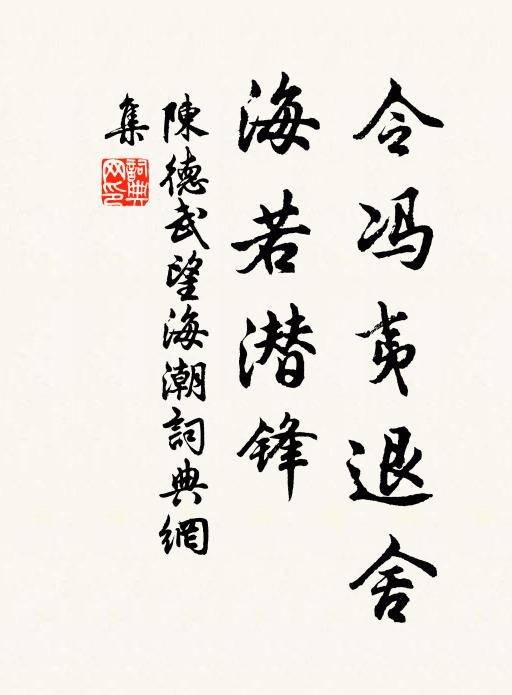 令冯夷退舍
海若潜锋
陳德武望海潮詞典網
集
詞典网印